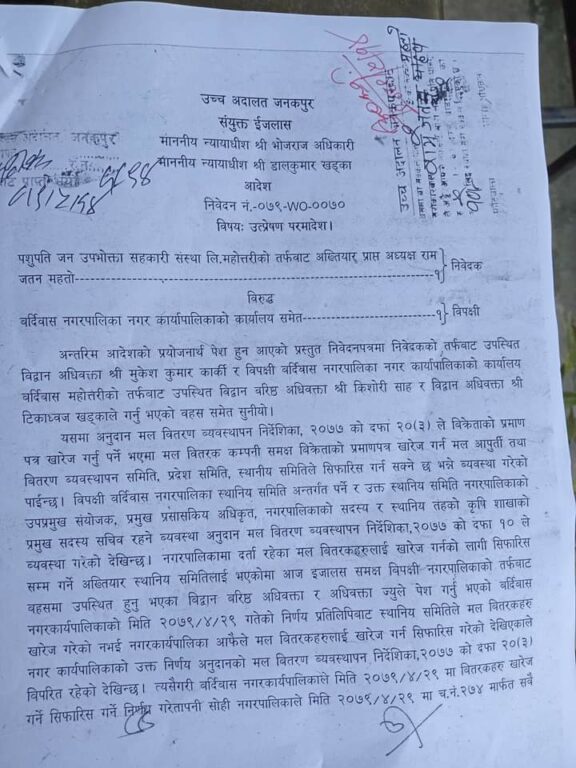 उच्च अदालत जनकपुर
संयुक्त ईजलास
माननीय न्यायाधीश श्री भोजराज अधिकारी
माननीय न्यायाधीश श्री डालकुमार खड्का
आदेश
निवेदन नं.-०७९-WO-००७०
विषयः उत्प्रेषण परमादेश।
पशुपति जन उपभोक्ता सहकारी संस्था लि.महोत्तरीको तर्फवाट अख्तियार प्राप्त अध्यक्ष राम
जतन महतो------------------------------------------------------------१ निवेदक
विरुद्ध
वर्दिवास नगरपालिका नगर कार्यापालिकाको कार्यालय समेत----------------------१ विपक्षी
अन्तरिम आदेशको प्रयोजनार्थ पेश हुन आएको प्रस्तुत निवेदनपत्रमा निवेदकको तर्फवाट उपस्थित
विद्वान अधिवक्ता श्री मुकेश कुमार कार्की र विपक्षी वर्दिवास नगरपालिका नगर कार्यापालिकाको कार्यालय
वर्दिवास महोत्तरीको तर्फवाट उपस्थित विद्वान वरिष्ठ अधिवक्ता श्री किशोरी साह र विद्वान अधिवक्ता श्री
टिकाध्वज खड्काले गर्नु भएको वहस समेत सुनीयो।
यसमा अनुदान मल वितरण व्यवस्थापन निर्देशिका, २०७७ को दफा २०(३) ले विक्रेताको प्रमाण
पत्र खारेज गर्नु पर्ने भएमा मल वितरक कम्पनी समक्ष विक्रेताको प्रमाणपत्र खारेज गर्न मल आपुर्ती तथा
वितरण व्यवस्थापन समिति, प्रदेश समिति, स्थानीय समितिले सिफारिस गर्न सक्ने छ भन्ने व्यवस्था गरेको
पाईन्छ। विपक्षी वर्दिवास नगरपालिका स्थानिय समिति अन्तर्गत पर्ने र उक्त स्थानिय समिति नगरपालिकाको
उपप्रमुख संयोजक, प्रमुख प्रसासकिय अधिकृत, नगरपालिकाको सदस्य र स्थानिय तहको कृषि शाखाको
प्रमुख सदस्य सचिव रहने व्यवस्था अनुदान मल वितरण व्यवस्थापन निर्देशिका,२०७७ को दफा १० ले
व्यवस्था गरेको देखिन्छ। नगरपालिकामा दर्ता रहेका मल वितरकहरुलाई खारेज गर्नको लागी सिफारिस
सम्म गर्ने अख्तियार स्थानिय समितिलाई भएकोमा आज इजालस समक्ष विपक्षी नगरपालिकाको तर्फवाट
वहसमा उपस्थित हुनु भएका विद्वान वरिष्ठ अधिवक्ता र अधिवक्ता ज्युले पेश गर्नु भएको वर्दिवास
नगरकार्यापालिकाको मिति २०७९/४/२९ गतेको निर्णय प्रतिलिपिवाट स्थानिय समितिले मल वितरकहरु
खारेज गरेको नभई नगरकार्यापालिका आफैले मल वितरकहरुलाई खारेज गर्न सिफारिस गरेको देखिएकाले
नगर कार्यापालिकाको उक्त निर्णय अनुदानको मल वितरण व्यवस्थापन निर्देशिका,२०७७ को दफा २०(३)
विपरित रहेको देखिन्छ। त्यसैगरी वर्दिवास नगरकार्यापालिकाले मिति २०७९/४/२९ मा वितरकहरु खारेज
गर्ने सिफारिस गर्ने निर्णय गरेतापनी सोही नगरपालिकाले मिति २०७९/४/२९ मा च.नं.२७४ मार्फत सवै